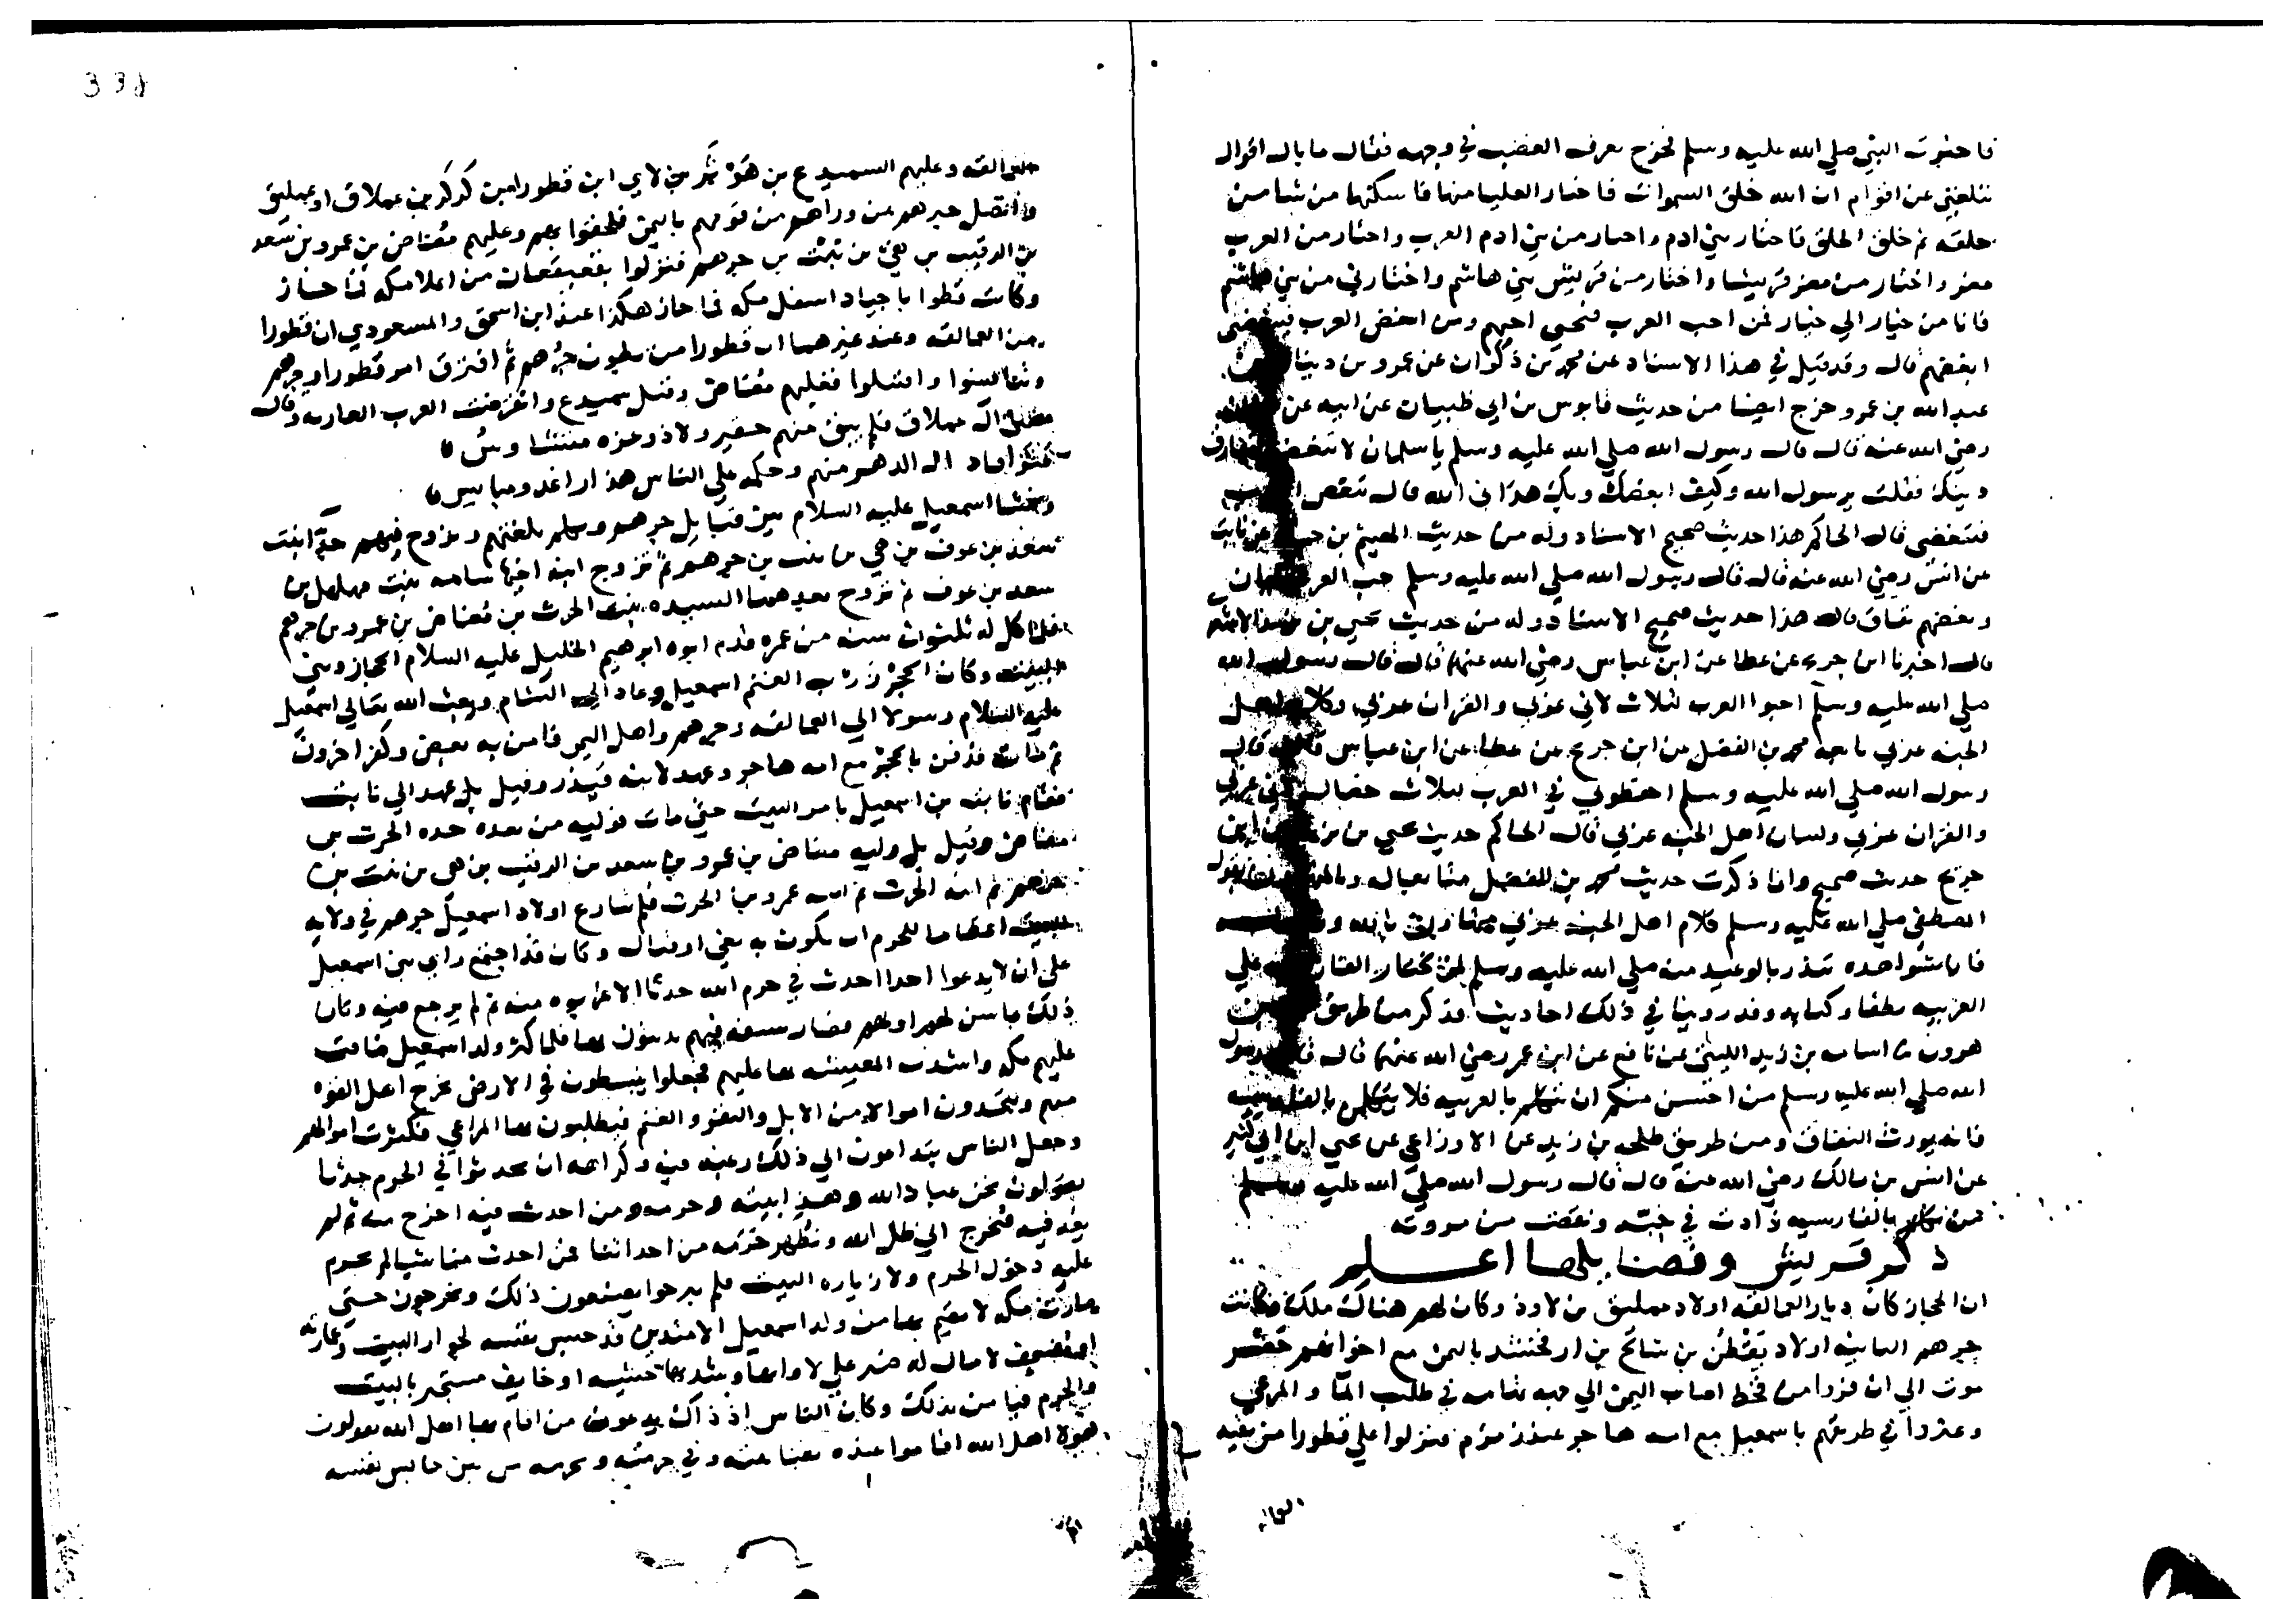 فاخبرت النبي صلي الله عليه وسلم فخرج يعرف الغضب في وجهه فقال ما بال اقوال
تبلغني عن اقوام ان الله خلق السموات فاختار العليا منها فاسكنها من شا من
خلقه ثم خلق الخلق فاختار بني ادم واختار من بني ادم العرب واختار من العرب
مضر واختار من مضر قريشا واختار من قريش بني هاشم واختارني من بني هاشم
فانا من خيار الي خيار فمن احب العرب فبحبي احبهم ومن ابغض العرب فببغضي
ابغضهم قال وقد قيل في هذا الاسناد عن محمد بن ذكوان عن عمرو بن دينار عن
عبد الله بن عمرو خرج ايضا من حديث قابوس بن ابي ظبيان عن ابيه عن
رضي الله عنه قال قال رسول الله صلي الله عليه وسلم يا سلمان لا تبغضني فتفارق
دينك فقلت يرسول الله وكيف ابغضك وبك هداني الله قال تبغض العرب
فتبغضني قال الحاكم هذا حديث صحيح الاسناد وله من حديث الهيثم بن عن ثابت
عن انس رضي الله عنه قال قال رسول الله صلي الله عليه وسلم حب العرب ايمان
وبغضهم نفاق قال هذا حديث صحيح الاسناد وله من حديث يحيي بن الاشعري
قال اخبرنا ابن جريج عن عطا عن ابن عباس رضي الله عنهما قال قال رسول الله
صلي الله عليه وسلم احبوا العرب لثلاث لاني عربي والقران عربي وكلام اهل
الجنه عربي تابعه محمد بن الفضل عن ابن جريج عن عطا عن ابن عباس قال قال
رسول الله صلي الله عليه وسلم احفظوني في العرب لثلاث خصال لاني عربي
والقران عربي ولسان اهل الجنه عربي قال الحاكم حديث يحيي بن عن ابن
جريج حديث صحيح وانما ذكرت حديث محمد بن الفضل متابعا له
المصطفي صلي الله عليه وسلم كلام اهل الجنه عربي
صلي الله عليه وسلم لمن يختار الفارسيه علي
العربيه نطقا وكتابه وقد روينا في ذلك احاديث فذكر من طريق
هرون اسامه بن زيد الليثي عن نافع عن ابن عمر رضي الله عنهما قال قال رسول
الله صلي الله عليه وسلم من احسن منكم ان يتكلم بالعربيه فلا يتكلمن بالفارسيه
فانه يورث النفاق ومن طريق طلحه بن زيد عن الاوزاعي عن يحيي ابن ابي كثير
عن انس بن مالك رضي الله عنه قال قال رسول الله صلي الله عليه وسلم
من تكلم بالفارسيه زادت في خبثه ونقصت من مروته
ذكر قريش وفضايلها اعلم
ان الحجاز كان ديار العمالقه اولاد عمليق بن لاوذ وكان لهم هناك ملك وكانت
جرهم الثانيه اولاد يقطن بن شالخ بن ارفخشذ باليمن مع اخوانهم حضر
موت الي ان فروا من قحط اصاب اليمن الي تهامه في طلب الما والمرعي
وعثروا في طريقهم باسمعيل مع امه هاجر عند زمزم فنزلوا علي قطورا من بقيه
العما
338
العمالقه وعليهم السميدع بن هوثر بن لاي ابن قطورا بن كركر بن عملاق او عمليق
واتصل خبرهم بمن وراهم من قومهم باليمن فلحقوا بهم وعليهم مضاض بن عمرو بن سعد
بن الرقيب بن نبت بن جرهم فنزلوا بقعيقعان من اعلا مكه فما حاز
وكانت قطورا باجياد اسفل مكه فما حاز هكذا عند ابن اسحق والمسعودي ان قطورا
من العمالقه وعند غيرهما ان قطورا من بطون جرهم ثم افترق امر قطورا وجرهم
وتنافسوا واقتتلوا فغلبهم مضاض وقتل سميدع وانقرضت العرب العاربه وقال
مضي ال عملاق فلم يبق منهم حقير ولا ذو عزه متشاوس
الدهر منهم وحكمه علي الناس هذا
ونشا اسمعيل عليه السلام بين قبايل جرهم وتكلم بلغتهم وتزوج فيهم ابنت
سعد بن عوف بن هني بن نبت بن جرهم ثم تزوج ابنه اخيها سامه بنت مهلهل بن
سعد بن عوف ثم تزوج بعدهما السيده بنت الحرث بن مضاض بن عمرو بن جرهم
فلما كمل له ثلثون سنه من عمره قدم ابوه ابرهيم الخليل عليه السلام الحجاز وبني
البيت وكان الحجر زرب الغنم اسمعيل وعاد الي الشام وبعث الله تعالي اسمعيل
عليه السلام رسولا الي العمالقه وجرهم واهل اليمن فامن به بعض وكفر اخرون
ثم مات فدفن بالحجر مع امه هاجر وعهد لابنه قيذر وقيل بل عهد الي نابت
فقام نابت بن اسمعيل بامر البيت حتي مات فوليه من بعده جده الحرث بن
مضاض وقيل بل وليه مضاض بن عمرو بن سعد بن الرقيب بن هني بن نبت بن
جرهم ثم ابنه الحرث ثم ابنه عمرو بن الحرث فلم تنازع اولاد اسمعيل جرهم في ولايه
البيت اعظاما للحرم ان يكون به بغي او قتال وكان قد اجتمع راي بني اسمعيل
علي ان لا يدعوا احدا احدث في حرم الله حدثا الا اخرجوه منه ثم لم يرجع فيه وكان
ذلك مما سن لهم اولهم فصار سنه فيهم يدينون بها فلما كثر ولد اسمعيل ضاقت
عليهم مكه واشتدت المعيشه بها عليهم فجعلوا ينبسطون في الارض يخرج اهل القوه
منهم ويتخذون اموالا من الابل والبقر والغنم فيطلبون بها المراعي فكثرت اموالهم
وجعل الناس يتداعون الي ذلك رغبه فيه وكراهه ان يحدثوا في الحرم حدثا
يقولون نحن عباد الله وهذا بيته وحرمه ومن احدث فيه اخرج منه ثم لم
يعد فيه فنخرج الي ظل الله ونطهر حرمه من احداثنا فمن احدث منا شيا لم يحرم
عليه دخول الحرم ولا زياره البيت فلم يبرحوا يصنعون ذلك ويخرجون حتي
صارت مكه لا يقيم بها من ولد اسمعيل الا متدين قد حبس نفسه لجوار البيت وعمارته
او ضعيف لا مال له صبر علي لاوايها وشدتها خشيه او خايف مستجير بالبيت
والحرم فيامن بذلك وكان الناس اذ ذاك يدعون من اقام بها اهل الله يقولون
هولا اهل الله اقاموا عنده بفنا بيته وفي حرمته وحرمه من بين حابس نفسه